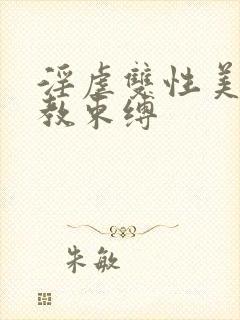 淫虐雙性美
教束縛
朱敏